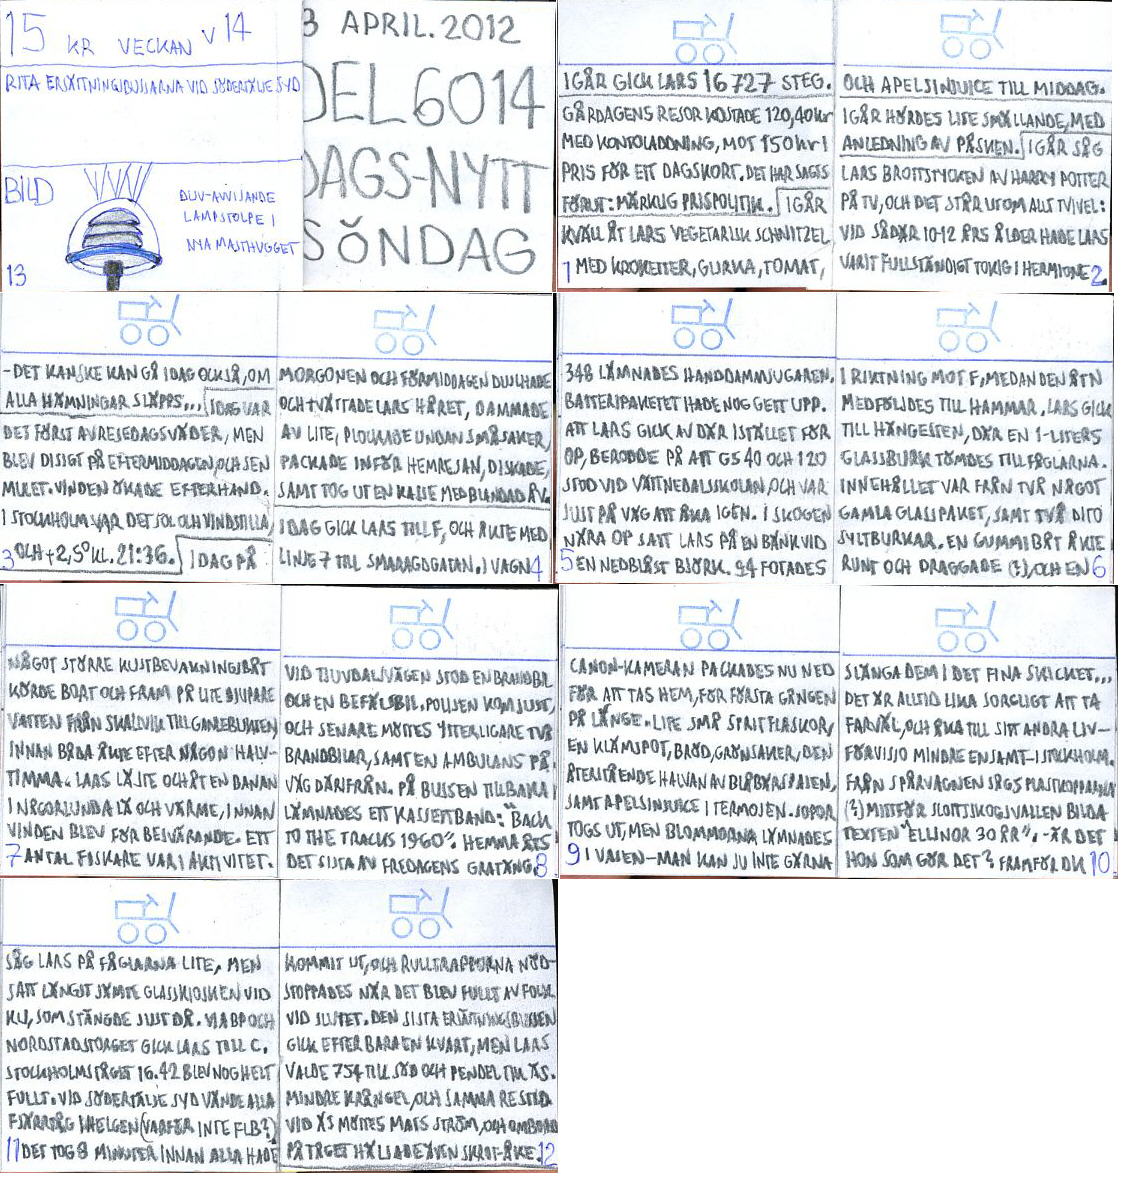 15 KR VECKAN V 14
RITA ERSÄTTNINGSBUSSARNA VID SÖDERTÄLJE SYD
BILD
DUV-AVVISANDE
LAMPSTOLPE I
NYA MASTHUGGET
13
8 APRIL. 2012
DEL 6014
DAGS-NYTT
SÖNDAG
IGÅR GICK LARS 16 727 STEG.
GÅRDAGENS RESOR KOSTADE 120,40 kr
MED KONTOLADDNING, MOT 150 kr I
PRIS FÖR ETT DAGSKORT. DET HAR SAGTS
FÖRUT: MÄRKLIG PRISPOLITIK. IGÅR
KVÄLL ÅT LARS VEGETARISK SCHNITZEL
1 MED KROKETTER, GURKA, TOMAT,
OCH APELSINJUICE TILL MIDDAG.
IGÅR HÖRDES LITE SMÄLLANDE, MED
ANLEDNING AV PÅSKEN. IGÅR SÅG
LARS BROTTSTYCKEN AV HARRY POTTER
PÅ TV, OCH DET STÅR UTOM ALLT TVIVEL:
VID SÅDÄR 10-12 ÅRS ÅLDER HADE LARS
VARIT FULLSTÄNDIGT TOKIG I HERMIONE 2
- DET KANSKE KAN GÅ IDAG OCKSÅ, OM
ALLA HÄMNINGAR SLÄPPS... IDAG VAR
DET FÖRST AVRESEDAGSVÄDER, MEN
BLEV DISIGT PÅ EFTERMIDDAGEN, OCH SEN
MULET. VINDEN ÖKADE EFTERHAND.
I STOCKHOLM VAR DET SOL OCH VINDSTILLA,
3 OCH +2,5° KL. 21:36. IDAG PÅ
MORGONEN OCH FÖRMIDDAGEN DUSCHADE
OCH TVÄTTADE LARS HÅRET, DAMMADE
AV LITE, PLOCKADE UNDAN SMÅSAKER,
PACKADE INFÖR HEMRESAN, DISKADE,
SAMT TOG UT EN KASSE MED BLANDAD ÅV.
IDAG GICK LARS TILL F, OCH ÅKTE MED
LINJE 7 TILL SMARAGDGATAN. I VAGN 4
348 LÄMNADES HANDDAMMSUGAREN.
BATTERIPAKETET HADE NOG GETT UPP.
ATT LARS GICK AV DÄR ISTÄLLET FÖR
OP, BERODDE PÅ ATT GS 40 OCH 120
STOD VID VÄTTNEDALSSKOLAN, OCH VAR
JUST PÅ VÄG ATT ÅKA IGEN. I SKOGEN
NÄRA OP SATT LARS PÅ EN BÄNK VID
5 EN NEDBLÅST BJÖRK. 94 FOTADES
I RIKTNING MOT F, MEDAN DEN ÅTN
MEDFÖLJDES TILL HAMMAR. LARS GICK
TILL HÄNGESTEN, DÄR EN 1-LITERS
GLASSBURK TÖMDES TILL FÅGLARNA.
INNEHÅLLET VAR FRÅN TVÅ NÅGOT
GAMLA GLASSPAKET, SAMT TVÅ DITO
SYLTBURKAR. EN GUMMIBÅT ÅKTE
RUNT OCH DRAGGADE (?), OCH EN 6
NÅGOT STÖRRE KUSTBEVAKNINGSBÅT
KÖRDE BORT OCH FRAM PÅ LITE DJUPARE
VATTEN FRÅN SKALVIK TILL
INNAN BÅDA ÅKTE EFTER NÅGON HALV-
TIMMA. LARS LÄSTE OCH ÅT EN BANAN
I NÅGORLUNDA LÄ OCH VÄRME, INNAN
VINDEN BLEV FÖR BESVÄRANDE. ETT
7 ANTAL FISKARE VAR I AKTIVITET.
VID TJUVDALSVÄGEN STOD EN BRANDBIL
OCH EN BEFÄLSBIL. POLISEN KOM JUST,
OCH SENARE MÖTTES YTTERLIGARE TVÅ
BRANDBILAR, SAMT EN AMBULANS PÅ
VÄG DÄRIFRÅN. PÅ BUSSEN TILLBAKA
LÄMNADES ETT KASSETTBAND: "BACK
TO THE TRACKS 1960". HEMMA ÅTS
DET SISTA AV FREDAGENS GRATÄNG. 8
CANON-KAMERAN PACKADES NU NED
FÖR ATT TAS HEM, FÖR FÖRSTA GÅNGEN
PÅ LÄNGE. LIFE SMÅ SPRITFLASKOR,
EN KLÄMSPOT, BRÖD, GRÖNSAKER, DEN
ÅTERSTÅENDE HALVAN AV BLÅBÄRSPAJEN,
SAMT APELSINJUICE I TERMOSEN. SOPOR
TOGS UT, MEN BLOMMORNA LÄMNADES
9 I VASEN—MAN KAN JU INTE GÄRNA
SLÄNGA DEM I DET FINA SKICKET...
DET ÄR ALLTID LIKA SORGLIGT ATT TA
FARVÄL, OCH ÅKA TILL SITT ANDRA LIV—
FÖRVISSO MINDRE ENSAMT—I STOCKHOLM.
FRÅN SPÅRVAGNEN SÅGS PLASTKOPPARNA
(?) MITTFÖR SLOTTSKOGSVALLEN BILDA
TEXTEN "ELLINOR 30 ÅR". -ÄR DET
HON SOM GÖR DET? FRAMFÖR DK 10
SÅG LARS PÅ FÅGLARNA LITE, MEN
SATT LÄNGST JÄMTE GLASSKIOSKEN VID
KU, SOM STÄNGDE JUST DÅ. VIA BP OCH
NORDSTADSTORGET GICK LARS TILL C.
STOCKHOLMSTÅGET 16.42 BLEV NOG HELT
FULLT. VID SÖDERTÄLJE SYD VÄNDE ALLA
FJÄRRTÅG I HELGEN (VARFÖR INTE FLB?)
11 DET TOG 8 MINUTER INNAN ALLA HADE
KOMMIT UT, OCH RULLTRAPPORNA NÖD-
STOPPADES NÄR DET BLEV FULLT AV FOLK
VID SLUTET. DEN SISTA ERSÄTTNINGSBUSSEN
GICK EFTER BARA EN KVART, MEN LARS
VALDE 754 TILL SÖD OCH PENDEL TILL ÄS.
MINDRE KRÅNGEL, OCH SAMMA RESTID.
VID ÄS MÖTTES MATS STRÖM, OCH OMBORD
PÅ TÅGET HÄLSADE ÄVEN SKROT-ÅKE. 12